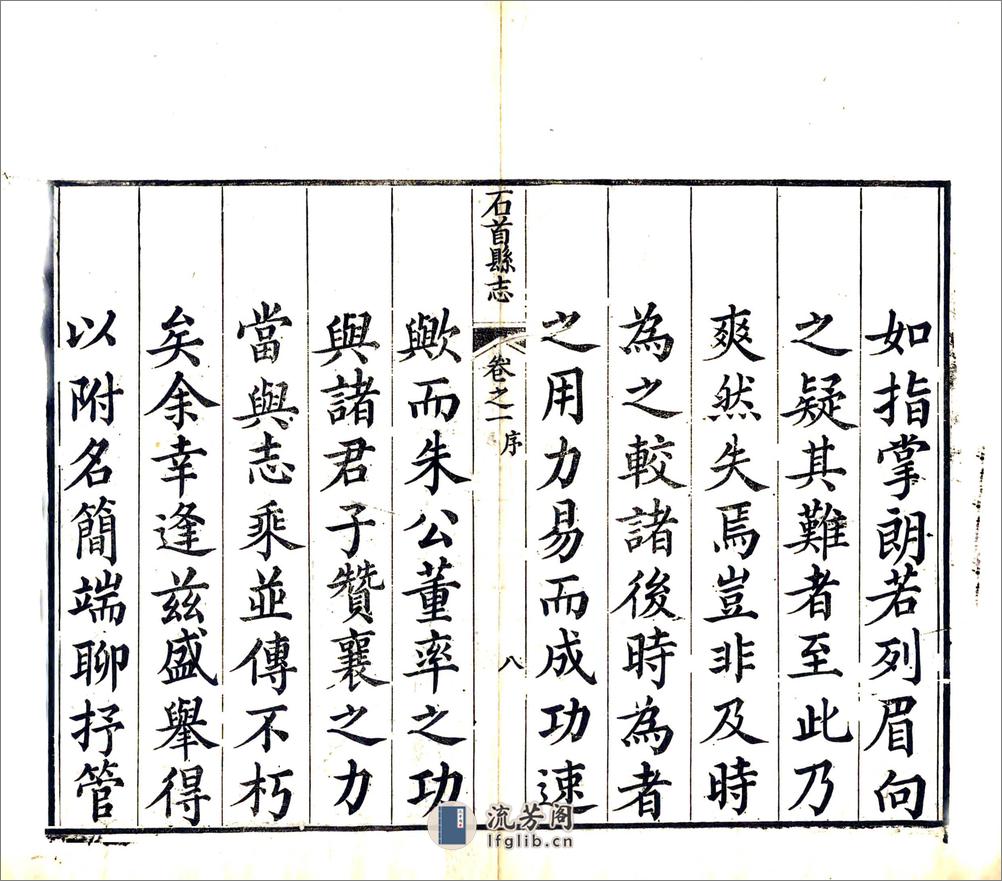 如指掌朗若列眉向
之疑其難者至此乃
爽然失焉豈非及時
為之較諸後時為者
之用力易而成功速
石首縣志 卷之一 序 八
歟而朱公董率之功
與諸君子贊襄之力
當與志乘並傳不朽
矣余幸逢茲盛舉得
以附名簡端聊抒管
流芳阁
lfglib.cn